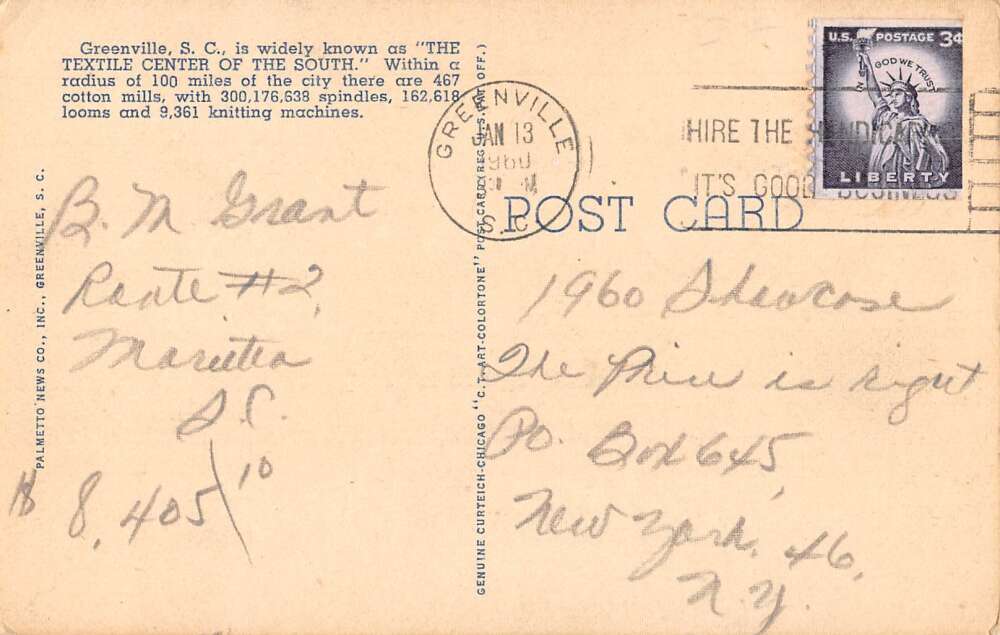 Greenville, S. C., is widely known as "THE
TEXTILE CENTER OF THE SOUTH." Within a
radius of 100 miles of the city there are 467
cotton mills, with 300,176,638 spindles, 162,618
looms and 9,361 knitting machines.
PALMETTO NEWS CO., INC., GREENVILLE, S. C.
B. M Grant
Route #2,
Marietta
S.C.
$ 8,405/10
GENUINE CURTEICH-CHICAGO "C. T. ART-COLORTONE" POST CARD (REG. U. S. PAT. OFF.)
GREENVILLE
JAN 13
1960
S.C.
HIRE THE HANDICAPPED
IT'S GOOD BUSINESS
U.S. POSTAGE 3¢
IN GOD WE TRUST
LIBERTY
POST CARD
1960 Showcase
The Price is right
PO. Box 645,
New York, 46,
N.Y.